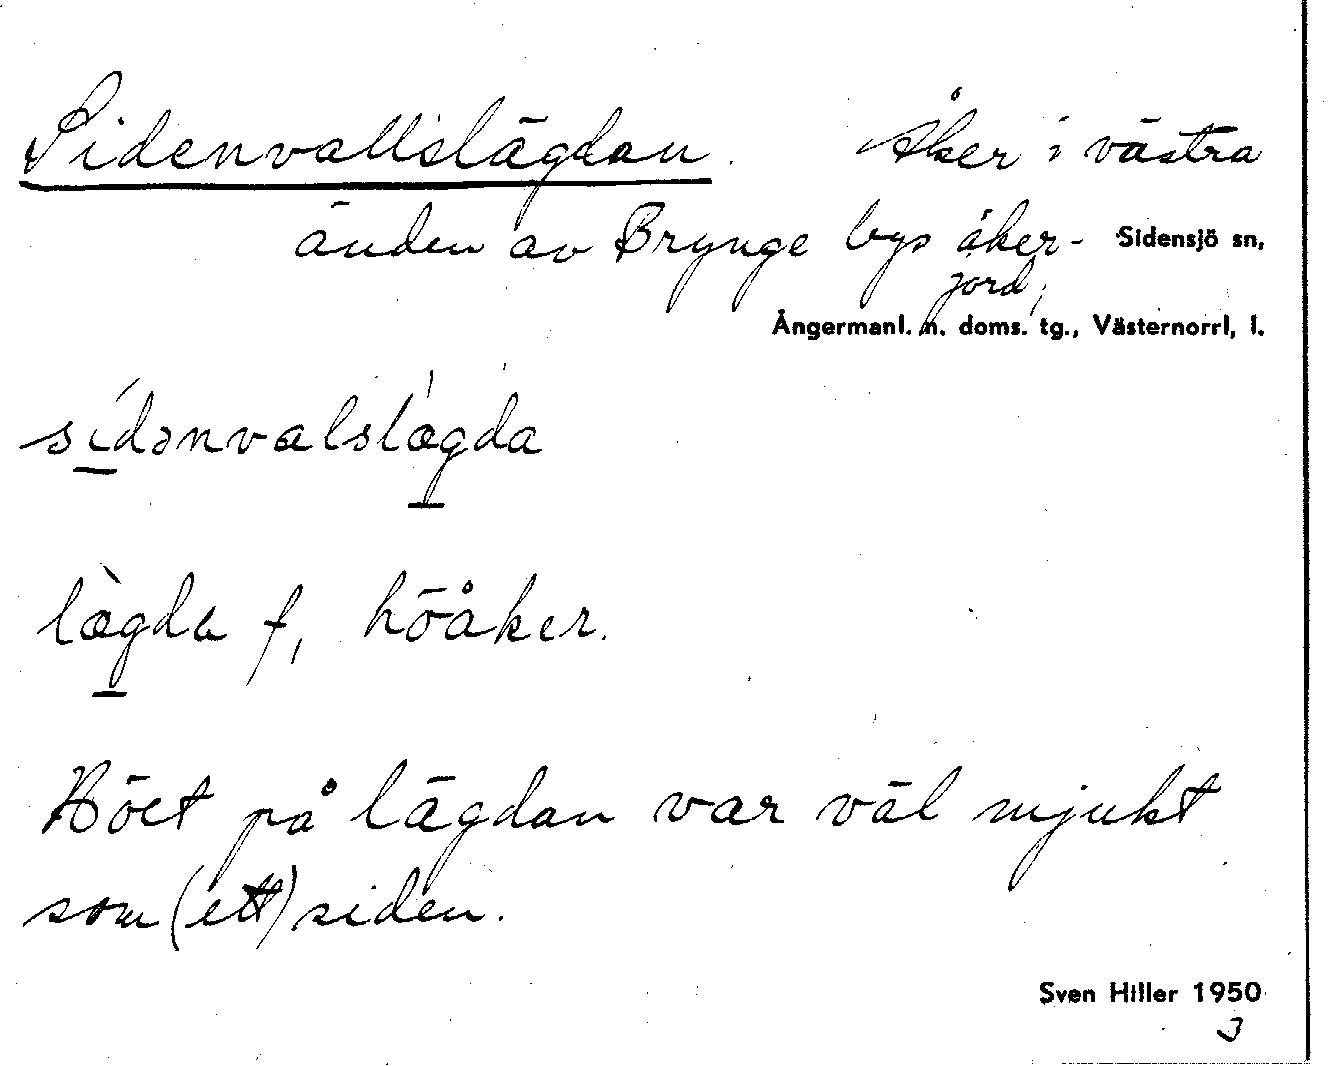 Sidenvallslägdan. Åker i västra
änden av Brynge bys åker- Sidensjö sn,
jord;
Ångermanl. n. doms. tg., Västernorrl, l.
sídənvalslǽgda
læ̀gda f, höåker.
Höet på lägdan var väl mjukt
som (ett) siden.
Sven Hiller 1950
3